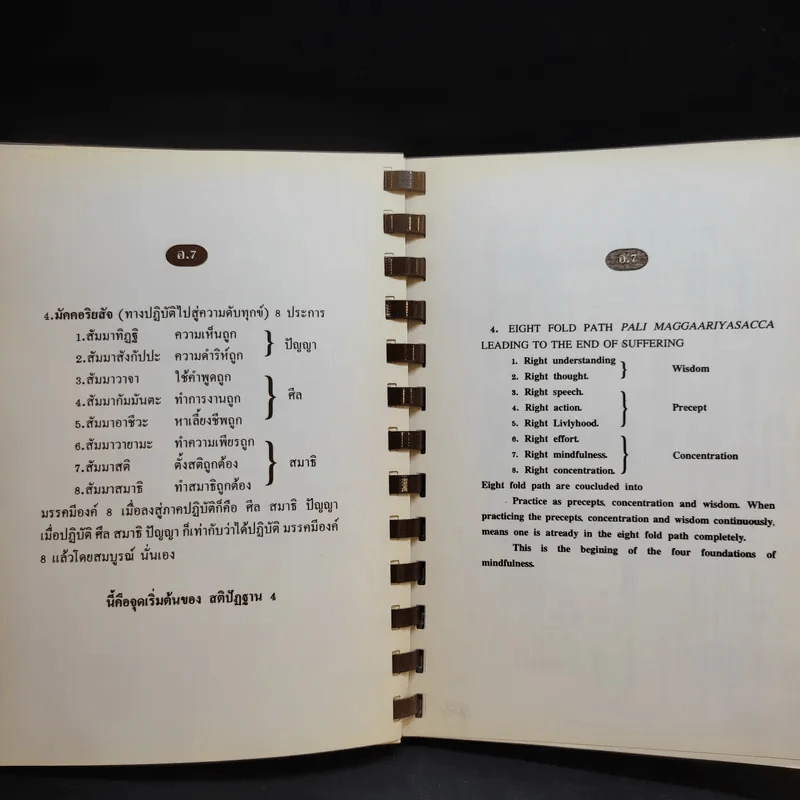 อ.7
4.มัคคอริยสัจ (ทางปฏิบัติไปสู่ความดับทุกข์) 8 ประการ
1.สัมมาทิฏฐิ ความเห็นถูก
2.สัมมาสังกัปปะ ความดำริห์ถูก
ปัญญา
3.สัมมาวาจา ใช้คำพูดถูก
4.สัมมากัมมันตะ ทำการงานถูก
5.สัมมาอาชีวะ หาเลี้ยงชีพถูก
ศีล
6.สัมมาวายามะ ทำความเพียรถูก
7.สัมมาสติ ตั้งสติถูกต้อง
8.สัมมาสมาธิ ทำสมาธิถูกต้อง
สมาธิ
มรรคมีองค์ 8 เมื่อลงสู่ภาคปฏิบัติก็คือ ศีล สมาธิ ปัญญา
เมื่อปฏิบัติ ศีล สมาธิ ปัญญา ก็เท่ากับว่าได้ปฏิบัติ มรรคมีองค์
8 แล้วโดยสมบูรณ์ นั่นเอง
นี้คือจุดเริ่มต้นของ สติปัฏฐาน 4
อ.7
4. EIGHT FOLD PATH PALI MAGGAARIYASACCA
LEADING TO THE END OF SUFFERING
1. Right understanding
2. Right thought.
Wisdom
3. Right speech.
4. Right action.
5. Right Livlyhood.
Precept
6. Right effort.
7. Right mindfulness.
8. Right concentration.
Concentration
Eight fold path are coucluded into
Practice as precepts, concentration and wisdom. When
practicing the precepts, concentration and wisdom continuously,
means one is atready in the eight fold path completely.
This is the begining of the four foundations of
mindfulness.